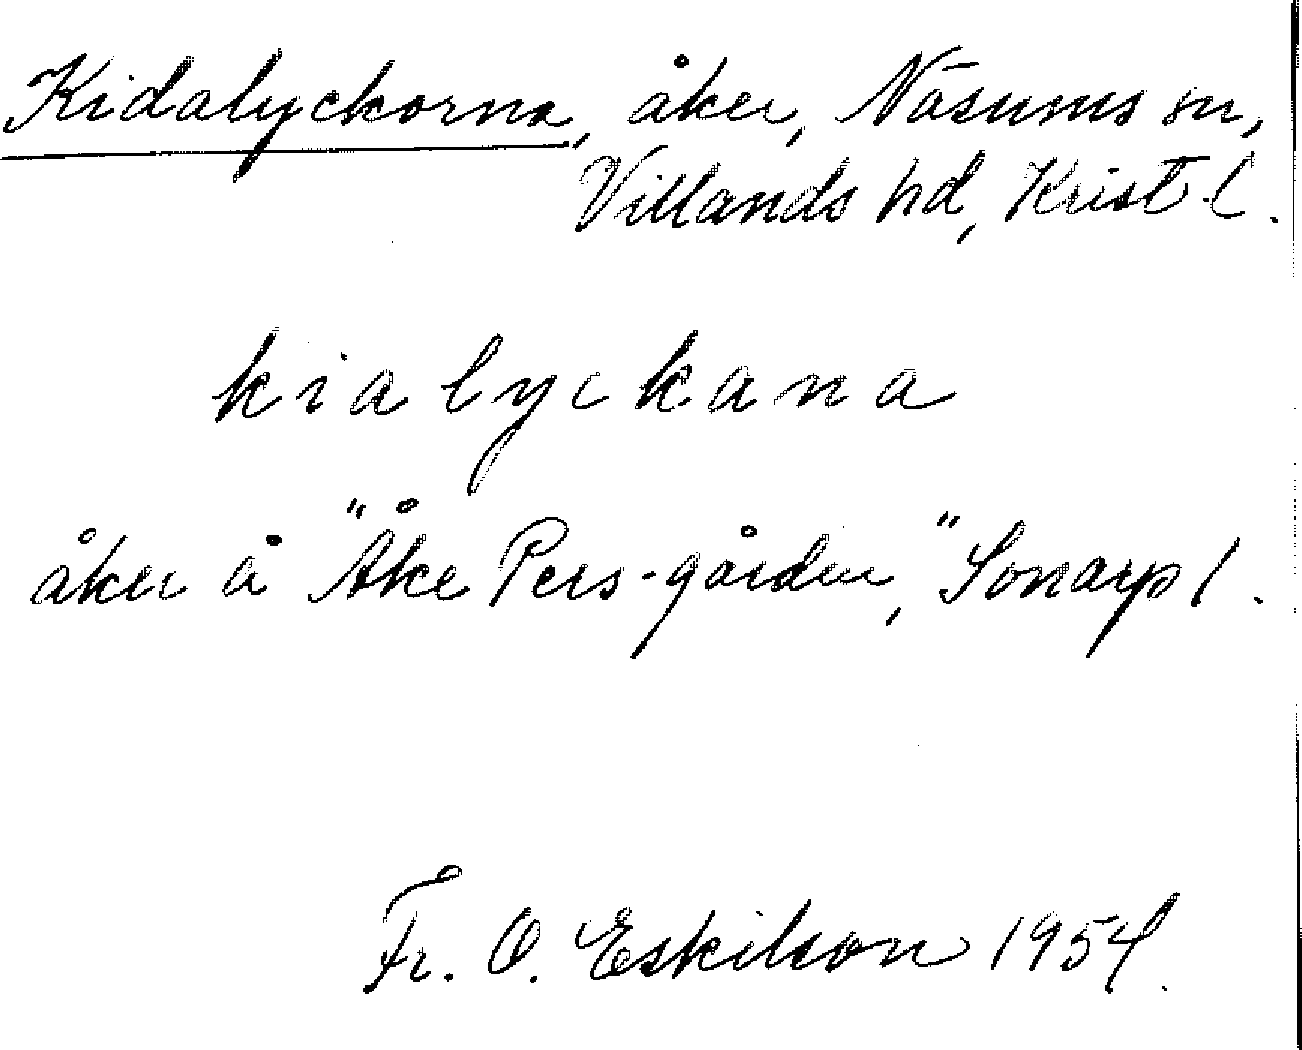 Kidalyckorna, åker, Näsums sn,
Villands hd, Krist. l.
kialyckana
åker å "Åke Pers-gården," Sonarp 1.
Fr. O. Eskilson 1954.